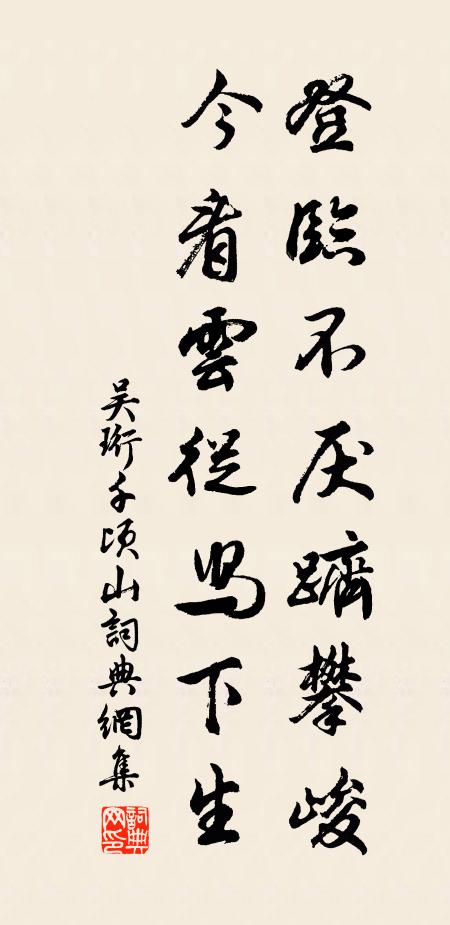 登臨不厌躋攀峻
今看雲從馬下生
吴珩千頃山詞典網集
詞典网印